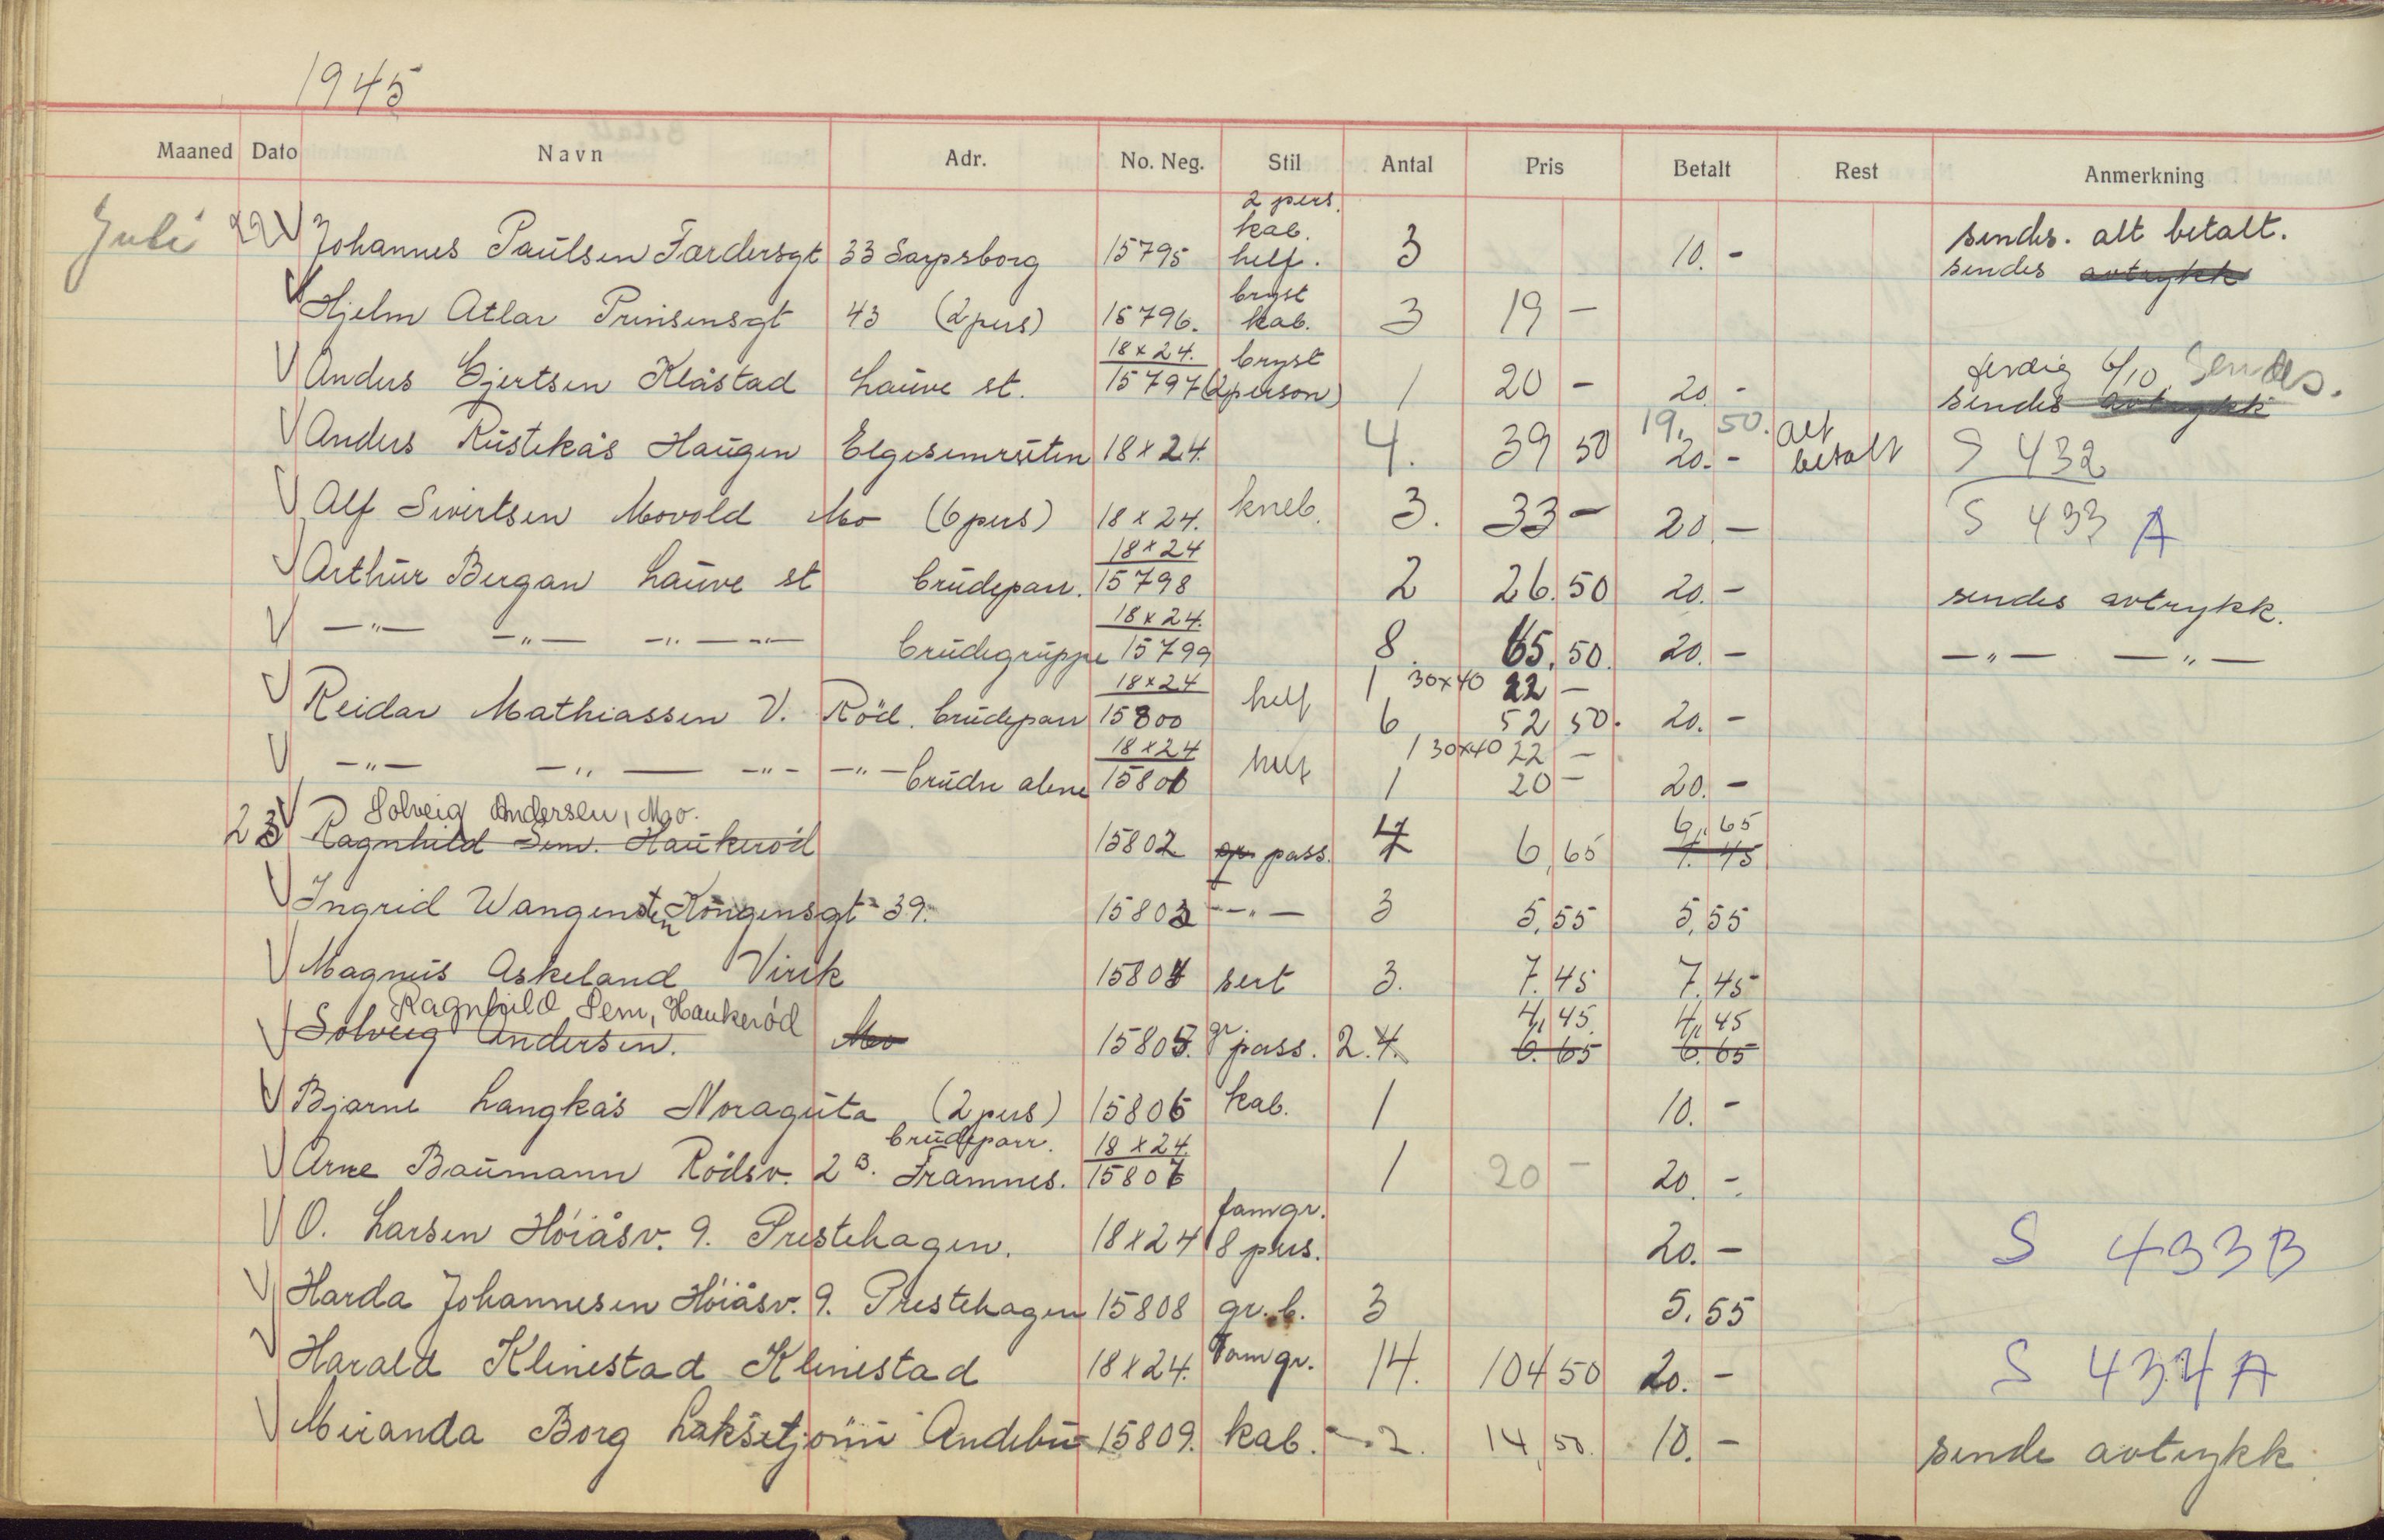 1945
Maaned Dato Navn Adr. No. Neg. Stil Antal Pris Betalt Rest Anmerkning
2 pers.
kab.
Juli 22 Johannes Paulsen Færdersgt 33 Sarpsborg 15795 helf. 3 10. - sendes. alt betalt.
sendes avtrykk
bryst
Hjelm Atlar Prinsensgt 43 (2 pers) 15796. kab. 3 19 -
18 x 24. bryst ferdig 6/10 Sendes.
Anders Gjertsen Klåstad Lauve st. 15797 (2 person) 1 20 - 20 - sendes avtrykk
19. 50. alt
Anders Rustekås Haugen Elgesemruten 18 x 24. 4. 39 50 20. - betalt S 432
Alf Sivertsen Movold Mo (6 pers) 18 x 24. kneb. 3. 33 - 20. - S 433 A
18 x 24
Arthur Bergan Lauve st brudepar. 15798 2 26. 50 20. - sendes avtrykk.
18 x 24.
—"— —"— —"— —"— brudegruppe 15799 8. 65. 50. 20. - —"— —"—
18 x 24 1 30x40 22 -
Reidar Mathiassen V. Röd. brudepar 15800 helf 6 52 50. 20. -
18 x 24 1 30x40 22 -
—"— —"— —"— —"— bruden alene 15801 helf 1 20 - 20. -
Solveig Andersen, Mo. 6. 65
23 Ragnhild Sem. Haukeröd 15802 gr pass. 4 6. 65 7. 45
Ingrid Wangensten Kongensgt 39. 15803 —"— 3 5. 55 5. 55
Magnus Askeland Virik 15804 sert 3. 7. 45 7. 45
Ragnhild Sem, Haukeröd 4. 45. 4. 45
Solveig Andersen. Mo 15805. gr pass. 2. 4. 6. 65 6. 65
Bjarne Langkås Noraguta (2 pers) 15806 kab. 1 10. -
brudeparr. 18 x 24.
Arne Baumann Rödsv. 2 B. Framnes. 15807 1 20 - 20. -
famgr.
O. Larsen Höiåsv. 9. Prestehagen. 18 x 24 8 pers. 20. - S 433B
Harda Johannesen Höiåsv. 9. Prestehagen 15808 gr. b. 3 5. 55
Harald Klinestad Klinestad 18 x 24. Famgr. 14. 104 50 20. - S 434A
Miranda Borg Andebu 15809. kab. 2. 14. 50. 10. - sende avtrykk